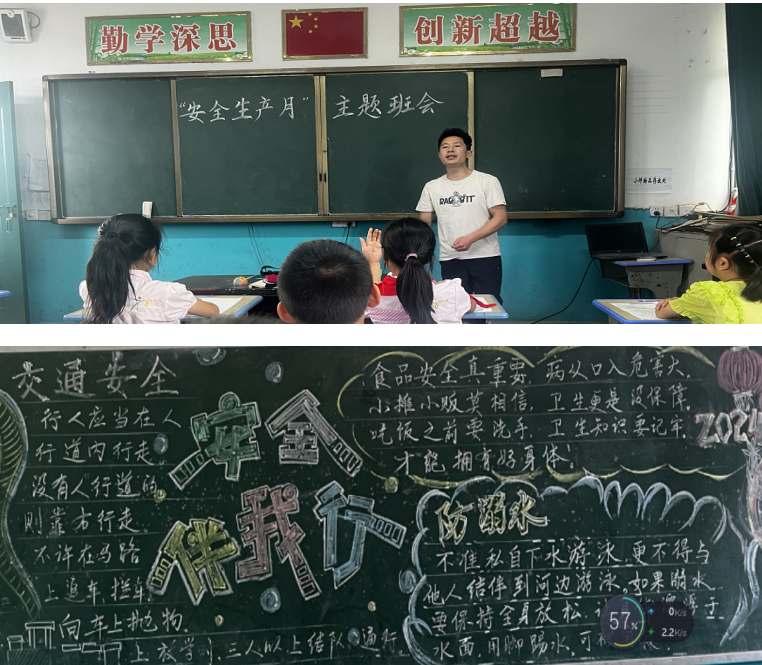 勤学深思
创新超越
“安全生产月”主题班会
RAB IT
小样物品存放处
交通安全
行人应当在人
行道内行走。
没有人行道的
则靠右行走。
不许在马路
上追车拦车
向车上抛物.
上放学 三人以上结队 通行。
安全
伴我行
食品安全真重要, 病从口入危害大,
小摊小贩莫相信, 卫生更是没保障,
吃饭之前要洗手, 卫生知识要记牢,
才能拥有好身体。
2024
防溺水
不准私自下水游泳,更不得与
他人结伴到河边游泳,如果溺水
要保持全身放松
水面,用脚踢水,可
57%
0K/s
2.2K/s